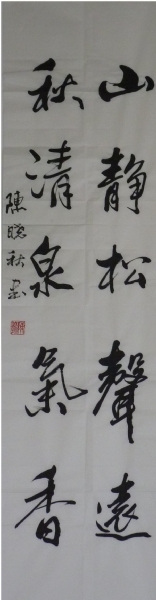 山静松聲遠
秋清泉氣香
陳曉秋書